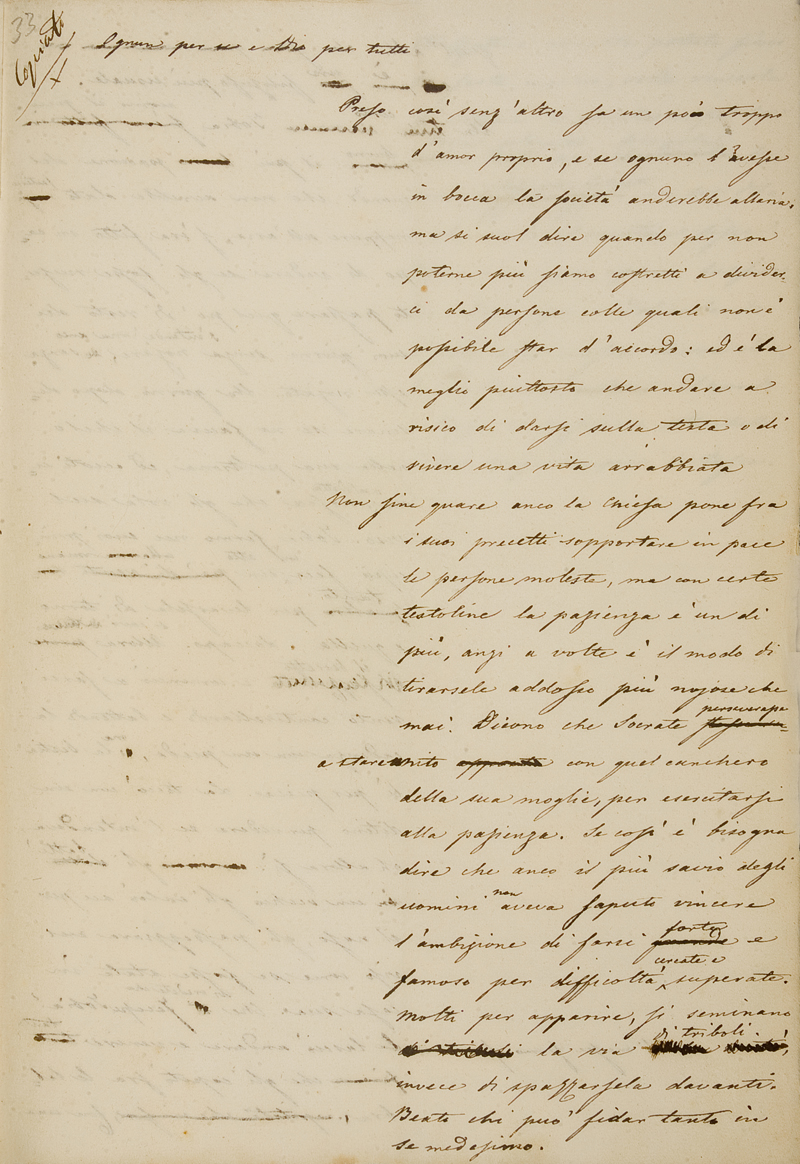 33
Copiato
Ognun per se e Dio per tutti
Preso così senz'altro sa un poco troppo
d'amor proprio, e se ognuno l'avesse
in bocca la società anderebbe all'aria.
ma si suol dire quando per non
poterne più siamo costretti a divider-
ci da persone colle quali non è
possibile star d'accordo: ed è la
meglio piuttosto che andare a
risico di darsi sulla testa o di
vivere una vita arrabbiata
Non sine quare anco la Chiesa pone fra
i suoi precetti sopportare in pace
le persone moleste, ma con certe
testoline la pazienza è un di
più, anzi a volte è il modo di
tirarsele addosso più nojose che
mai. Dicono che Socrate perseverasse
a stare unito apposta con quel canchero
della sua moglie, per esercitarsi
alla pazienza. Se così è bisogna
dire che anco il più savio degli
uomini non aveva saputo vincere
l'ambizione di farsi forte e
famoso per difficoltà cercate e superate.
Molti per apparire, si seminano
di triboli la via di triboli.
invece di spazzarsela davanti.
Beato chi può fidar tanto in
se medesimo.